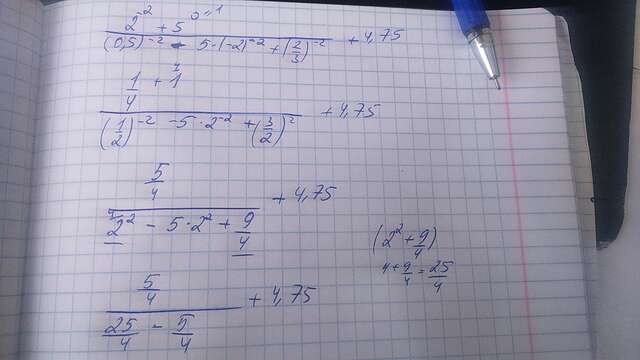 2^-2 + 5^0=1
(0,5)^-2 - 5·(-2)^-2 + (2/3)^-2 + 4,75
1/4 + 1
(1/2)^-2 - 5·2^-2 + (3/2)^2 + 4,75
5/4
2^2 - 5·2^2 + 9/4 + 4,75
(2^2 + 9/4)
4 + 9/4 = 25/4
5/4
25/4 - 5/4 + 4,75